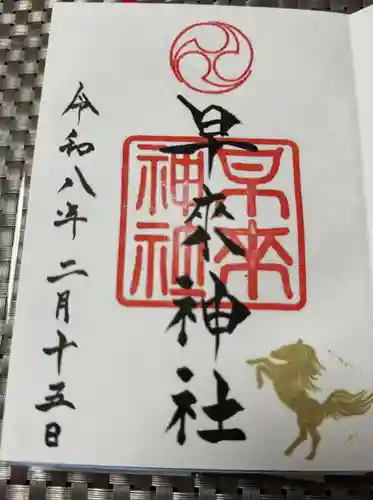 早來神社
早来神社
令和八年二月十五日